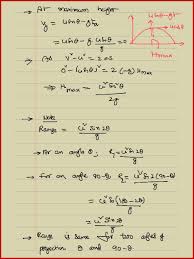 → At maximum height
y = usinθ - gtx
= usinθ - g usinθ/g
→ As v² - u² = 2as
0² - (usinθ)² = 2(-g)Hmax
⇒ Hmax = u² sin²θ / 2g
→ Note
Range = u² sin 2θ / g
→ For an angle θ, R₁ = u² sin2θ / g
→ for an angle 90-θ R₂ = u² sin 2(90-θ) / g
= u² sin(180-2θ) / g
= u² sin2θ / g
→ Range is same for two angles of
projection θ and 90-θ
usinθ-gt
ucosθ
Hmax